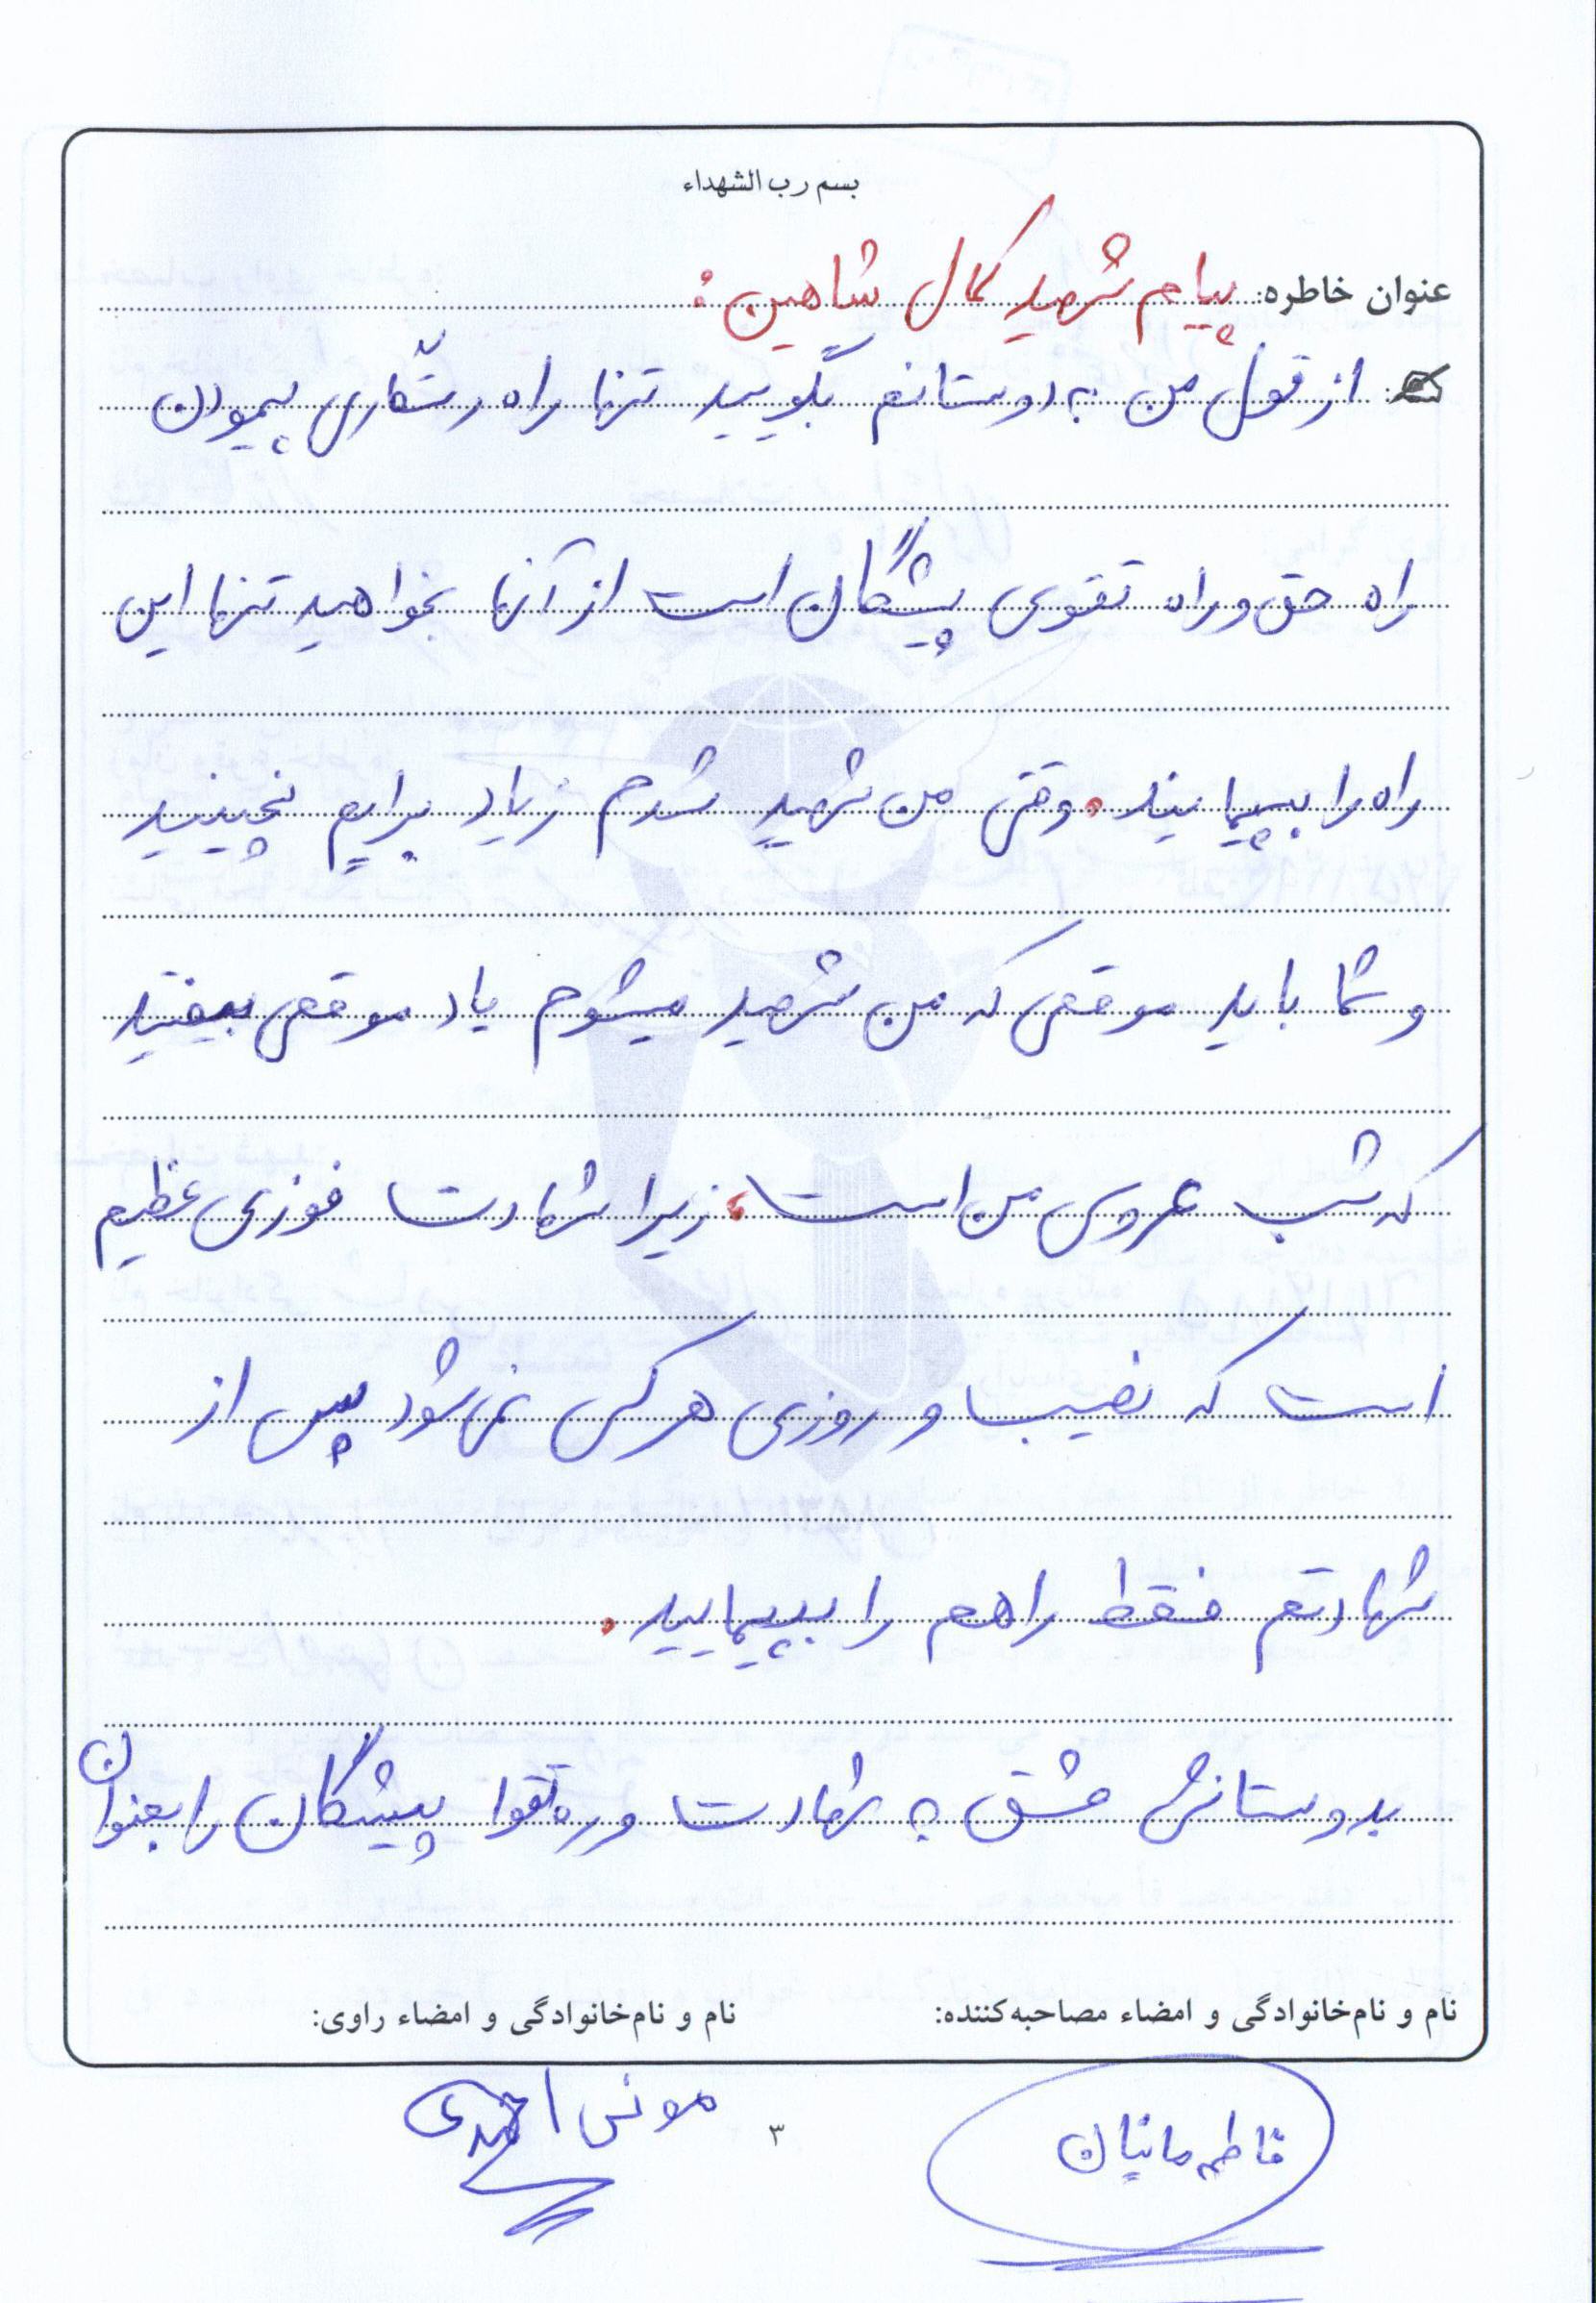 بسم رب الشهداء
عنوان خاطره: پیام شهید کمال شاهین :
از قول من به دوستانم بگویید تنها راه رستگاری پیمودن
راه حق و راه تقوی پیشگان است از آنها بخواهید تنها این
راه را بپیمایند. وقتی من شهید شدم زیاد برایم نچینید
و شما باید موقعی که من شهید میشوم یاد موقعی بیفتید
که شب عروسی من است، زیرا شهادت فوزی عظیم
است که نصیب و روزی هر کس نمی شود پس از
شهادتم فقط راهم را بپیمایید.
بدوستانش عشق به شهادت و ره تقوا پیشگان را بعنوان
نام و نام‌خانوادگی و امضاء مصاحبه‌کننده: نام و نام‌خانوادگی و امضاء راوی:
فاطمه مانیان ۳ مونس احمدی